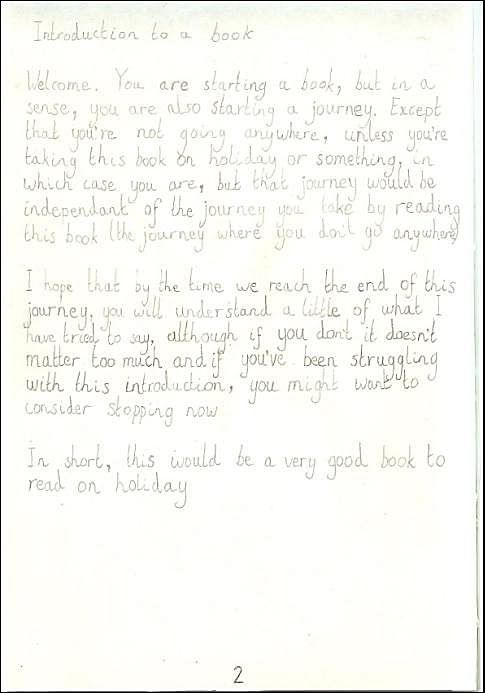 Introduction to a book
Welcome. You are starting a book, but in a
sense, you are also starting a journey. Except
that you're not going anywhere, unless you're
taking this book on holiday or something, in
which case you are, but that journey would be
independant of the journey you take by reading
this book (the journey where you don't go anywhere)
I hope that by the time we reach the end of this
journey, you will understand a little of what I
have tried to say, although if you don't it doesn't
matter too much and if you've been struggling
with this introduction, you might want to
consider stopping now
In short, this would be a very good book to
read on holiday
2